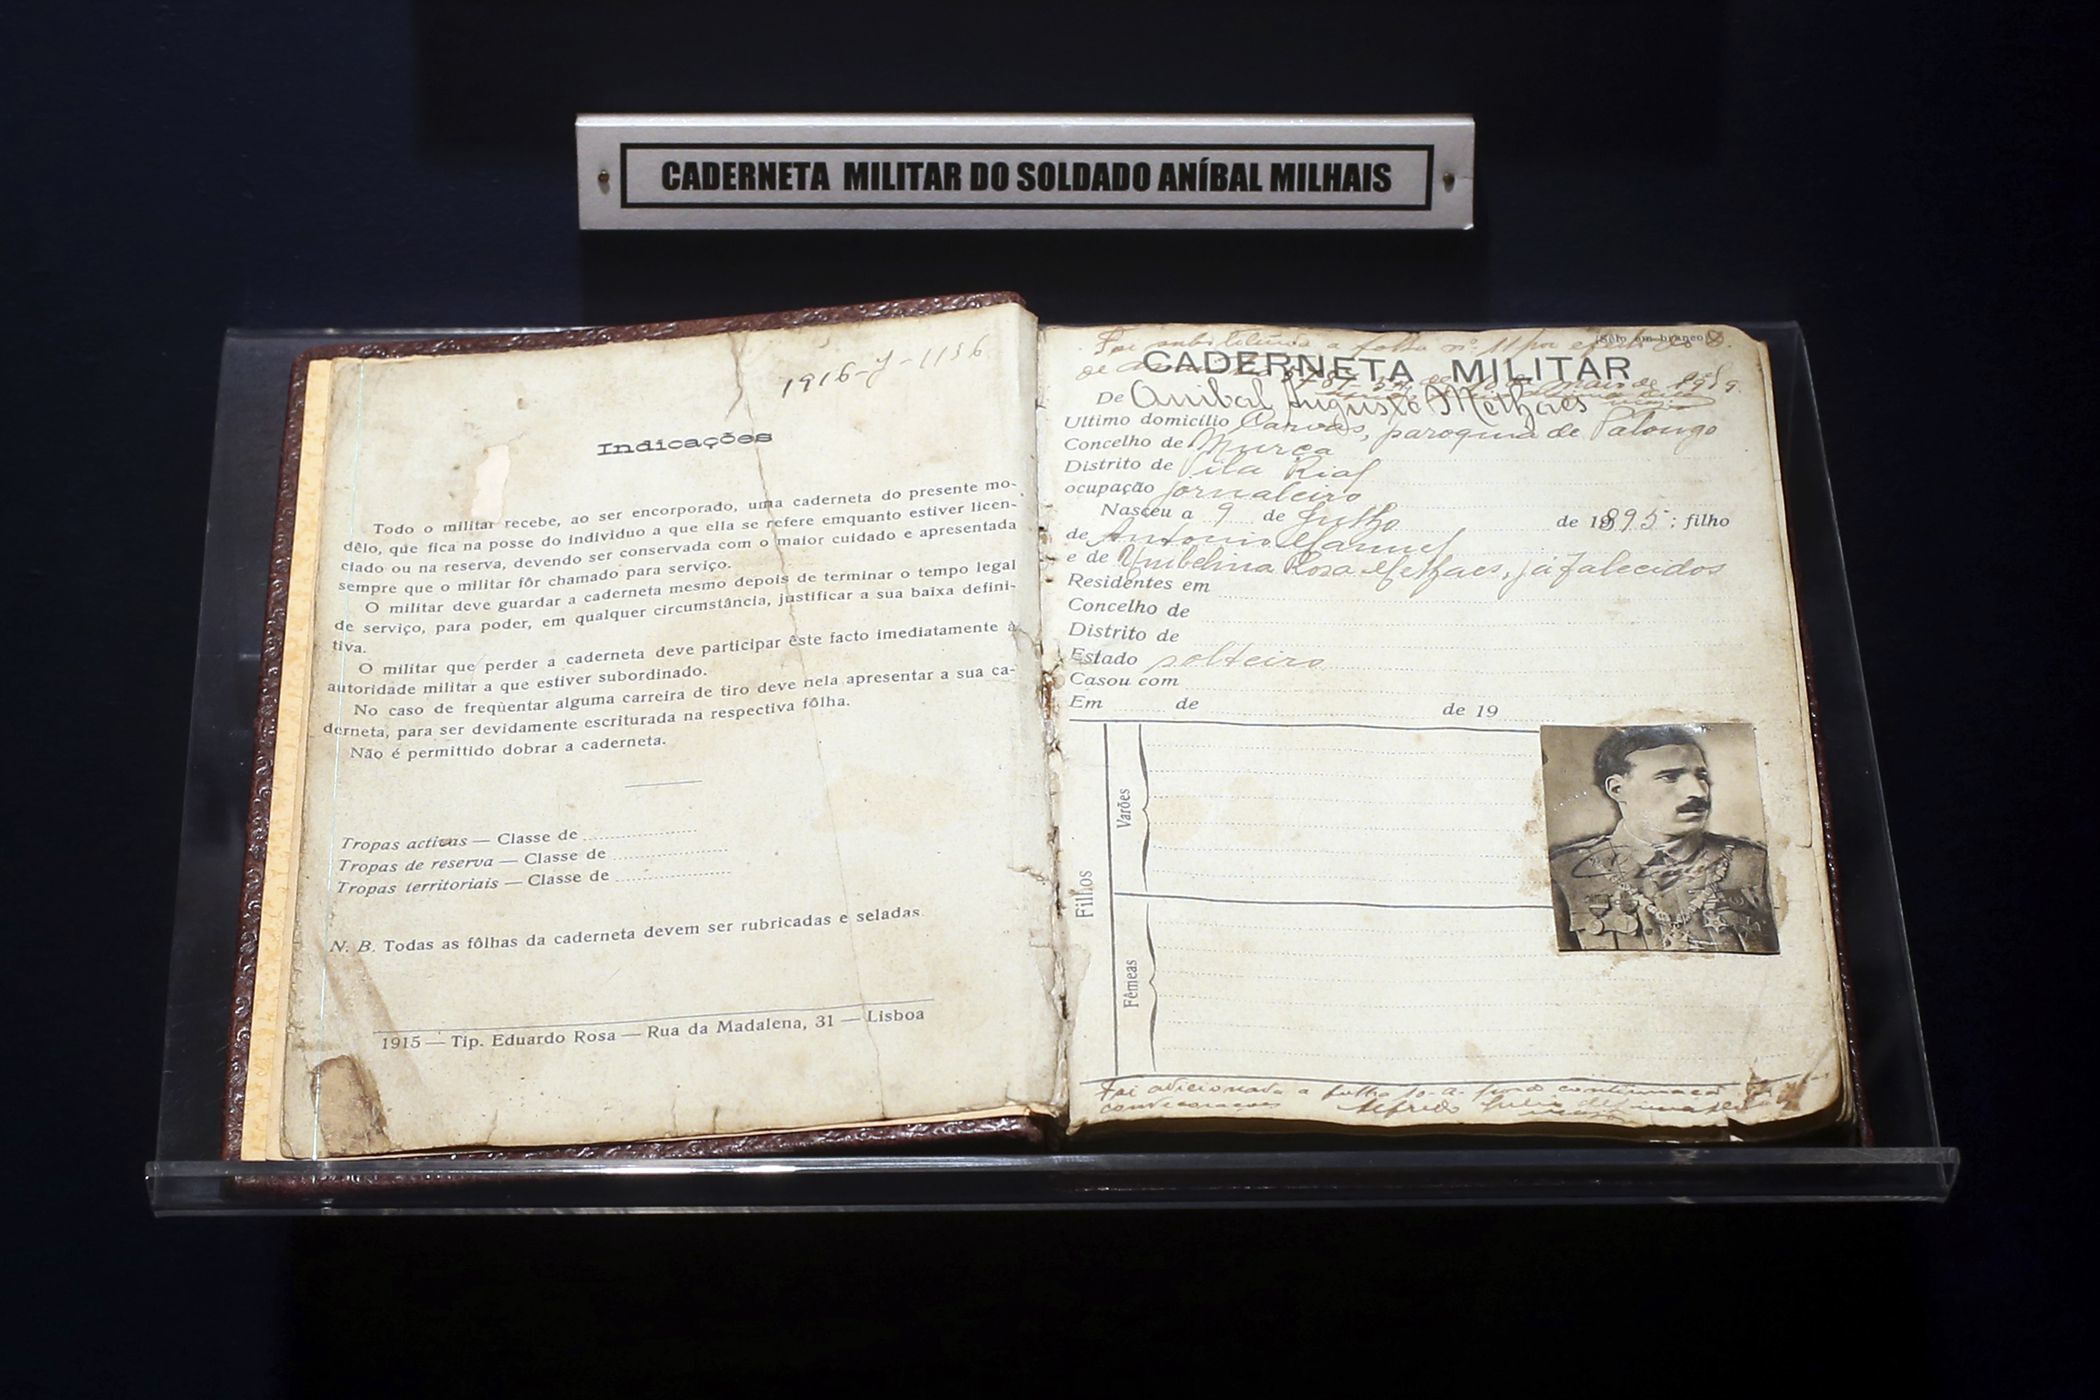 CADERNETA MILITAR DO SOLDADO ANÍBAL MILHAIS
1916-J-1136
Indicações
Todo o militar recebe, ao ser encorporado, uma caderneta do presente mo-
dêlo, que fica na posse do individuo a que ella se refere emquanto estiver licen-
ciado ou na reserva, devendo ser conservada com o maior cuidado e apresentada
sempre que o militar fôr chamado para serviço.
O militar deve guardar a caderneta mesmo depois de terminar o tempo legal
de serviço, para poder, em qualquer circumstância, justificar a sua baixa defini-
tiva.
O militar que perder a caderneta deve participar êste facto imediatamente à
autoridade militar a que estiver subordinado.
No caso de freqüentar alguma carreira de tiro deve nela apresentar a sua ca-
derneta, para ser devidamente escriturada na respectiva fôlha.
Não é permittido dobrar a caderneta.
Tropas activas — Classe de
Tropas de reserva — Classe de
Tropas territoriais — Classe de
N. B. Todas as fôlhas da caderneta devem ser rubricadas e seladas.
1915 — Tip. Eduardo Rosa — Rua da Madalena, 31 — Lisboa
(Selo em branco)
Foi substituida a folha nº 11 por
CADERNETA MILITAR
de Maio de
De Anibal Augusto Melhaes
Ultimo domicílio Carvas, paroquia de Valongo
Concelho de Murça
Distrito de Vila Rial
ocupação jornaleiro
Nasceu a 9 de Julho de 1895; filho
de Antonio Manuel
e de Umbelina Rosa Melhaes, já falecidos
Residentes em
Concelho de
Distrito de
Estado solteiro
Casou com
Em de de 19
Filhos
Varões
Fêmeas
Foi adicionada a folha 10-A para continuação
condecorações Alfredo